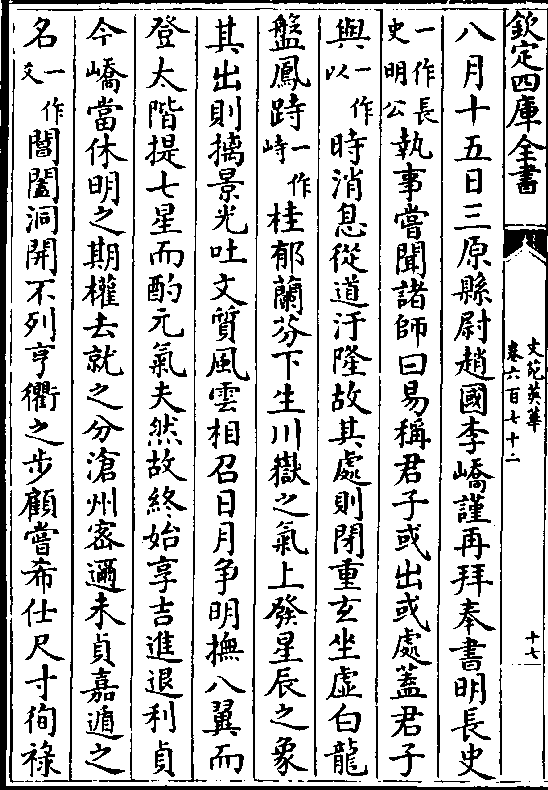 欽定四庫全書
文苑英華
卷六百七十二
十七
八月十五日三原縣尉趙國李嶠謹再拜奉書明長史
一作長史明公執事嘗聞諸師曰易稱君子或出或處蓋君子
與一作以時消息從道汙隆故其處則閉重玄坐虛白龍
盤鳳跱一作峙桂郁蘭芬下生川嶽之氣上發星辰之象
其出則摛景光吐文質風雲相召日月争明撫八翼而
登太階提七星而酌元氣夫然故終始享吉進退利貞
今嶠當休明之期權去就之分滄州密邇未貞嘉遁之
名一作爻閶闔洞開不列亨衢之步顧嘗希仕尺寸徇祿